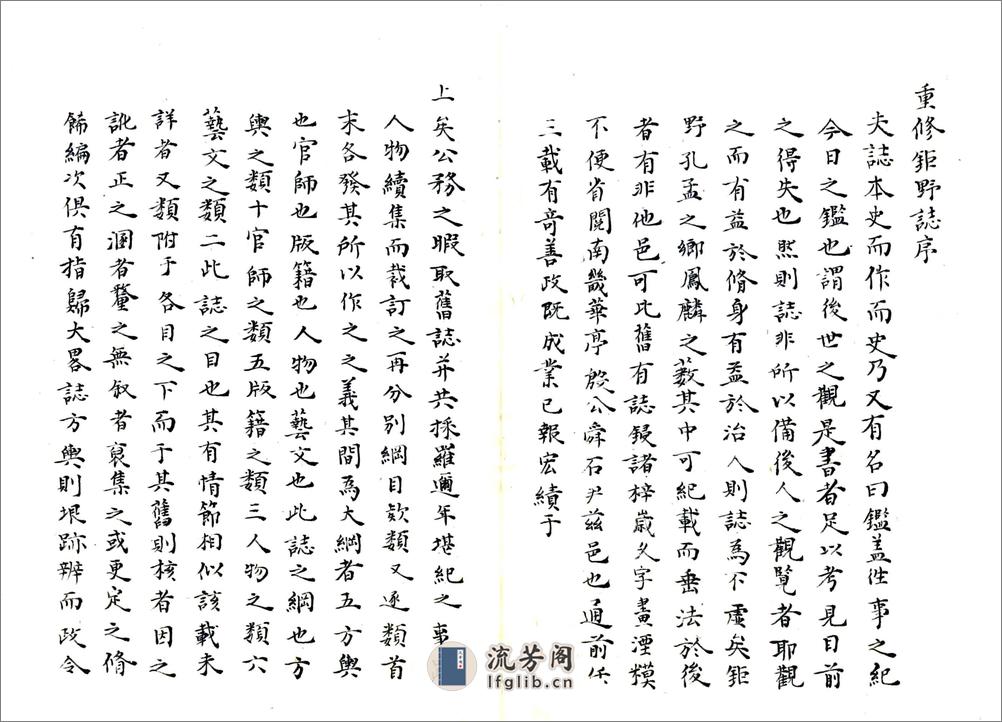 重修鉅野誌序
夫誌本史而作而史乃又有名曰鑑盖徃事之紀
今日之鑑也謂後世之觀是書者足以考見目前
之得失也然則誌非所以備後人之觀覽者耶觀
之而有益於脩身有益於治人則誌為不虛矣鉅
野孔孟之鄉鳳麟之藪其中可紀載而垂法於後
者有非他邑可比舊有誌鋟諸梓嵗久字畫湮糢
不便省閱南畿華亭殷公舜石尹茲邑也通前任
三載有竒善政既成業已報宏績于
上矣公務之暇取舊誌并共採羅邇年堪紀之事
人物續集而裁訂之再分别綱目欵類又逐類首
末各發其所以作之之義其間為大綱者五方輿
也官師也版籍也人物也藝文也此誌之綱也方
輿之類十官師之類五版籍之類三人物之類六
藝文之類二此誌之目也其有情節相似該載未
詳者又類附于各目之下而于其舊則核者因之
訛者正之溷者釐之無叙者裒集之或更定之脩
餙編次俱有指歸大畧誌方輿則垠跡辨而政令
流芳阁
lfglib.cn